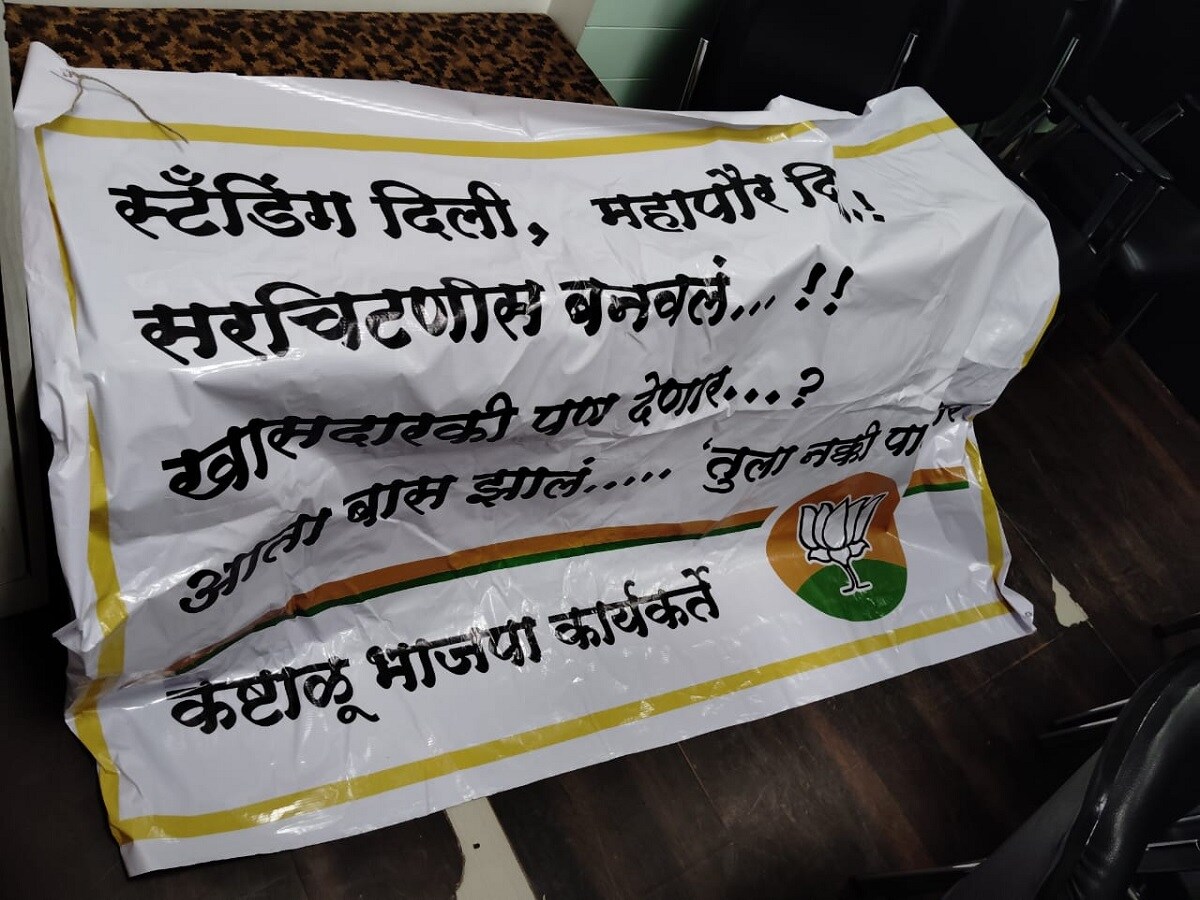 स्टँडिंग दिली, महापौर !
सरचिटणीस बनवलं... !!
खासदारकी पण देणार...?
आता बास झालं..... 'तुला नक्की
कष्टाळू भाजपा कार्यकर्ते